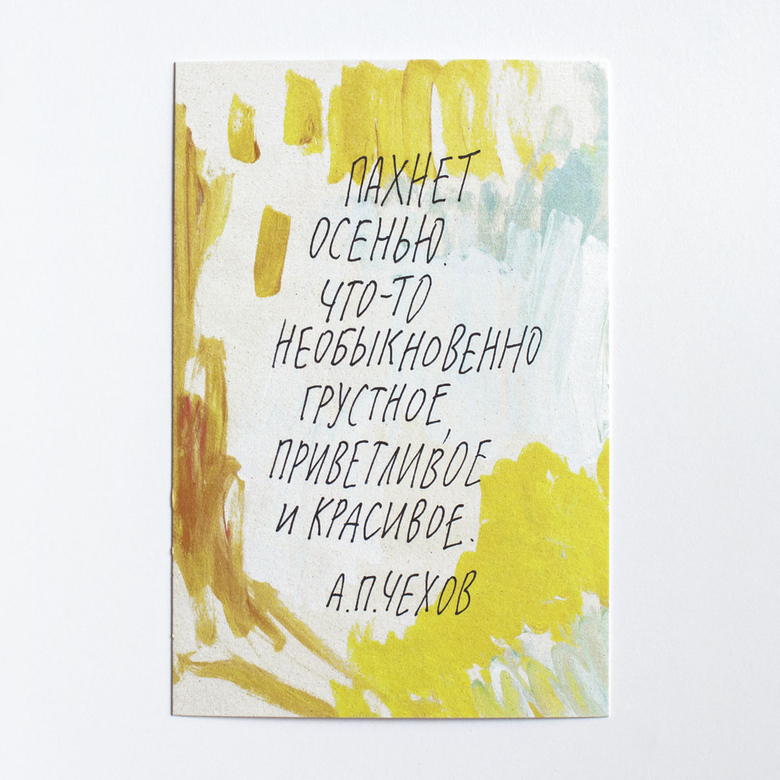 ПАХНЕТ
ОСЕНЬЮ.
ЧТО-ТО
НЕОБЫКНОВЕННО
ГРУСТНОЕ,
ПРИВЕТЛИВОЕ
И КРАСИВОЕ.
А.П.ЧЕХОВ